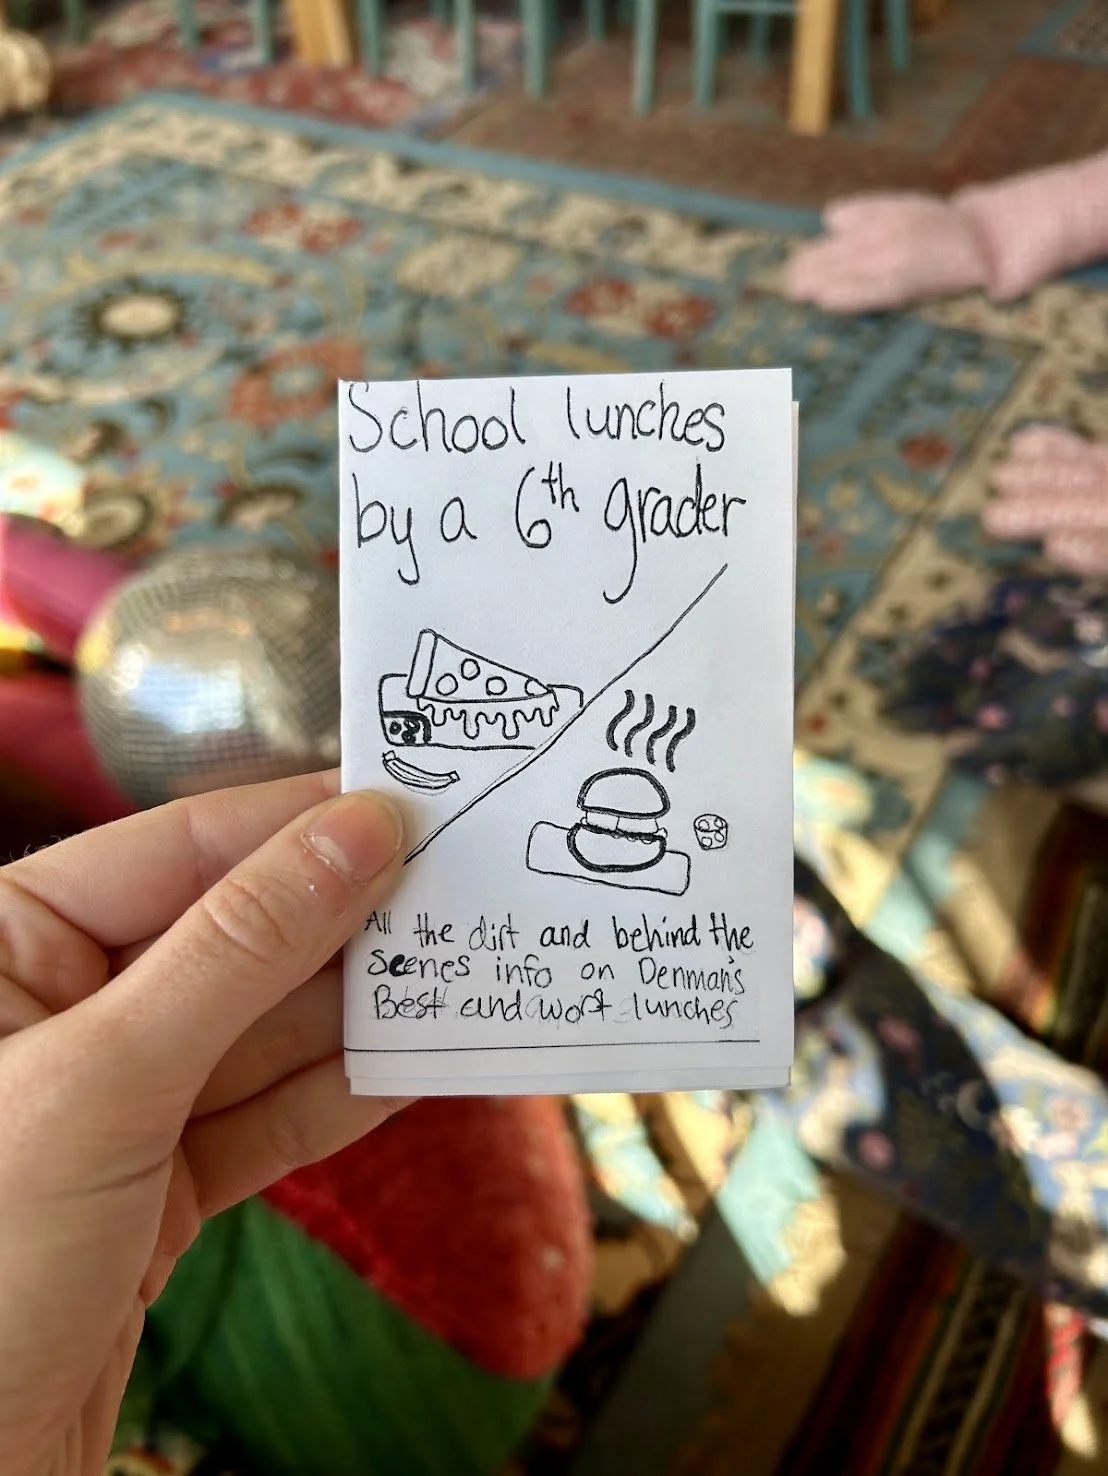 School lunches
by a 6th grader
All the dirt and behind the
scenes info on Denman's
Best and worst lunches